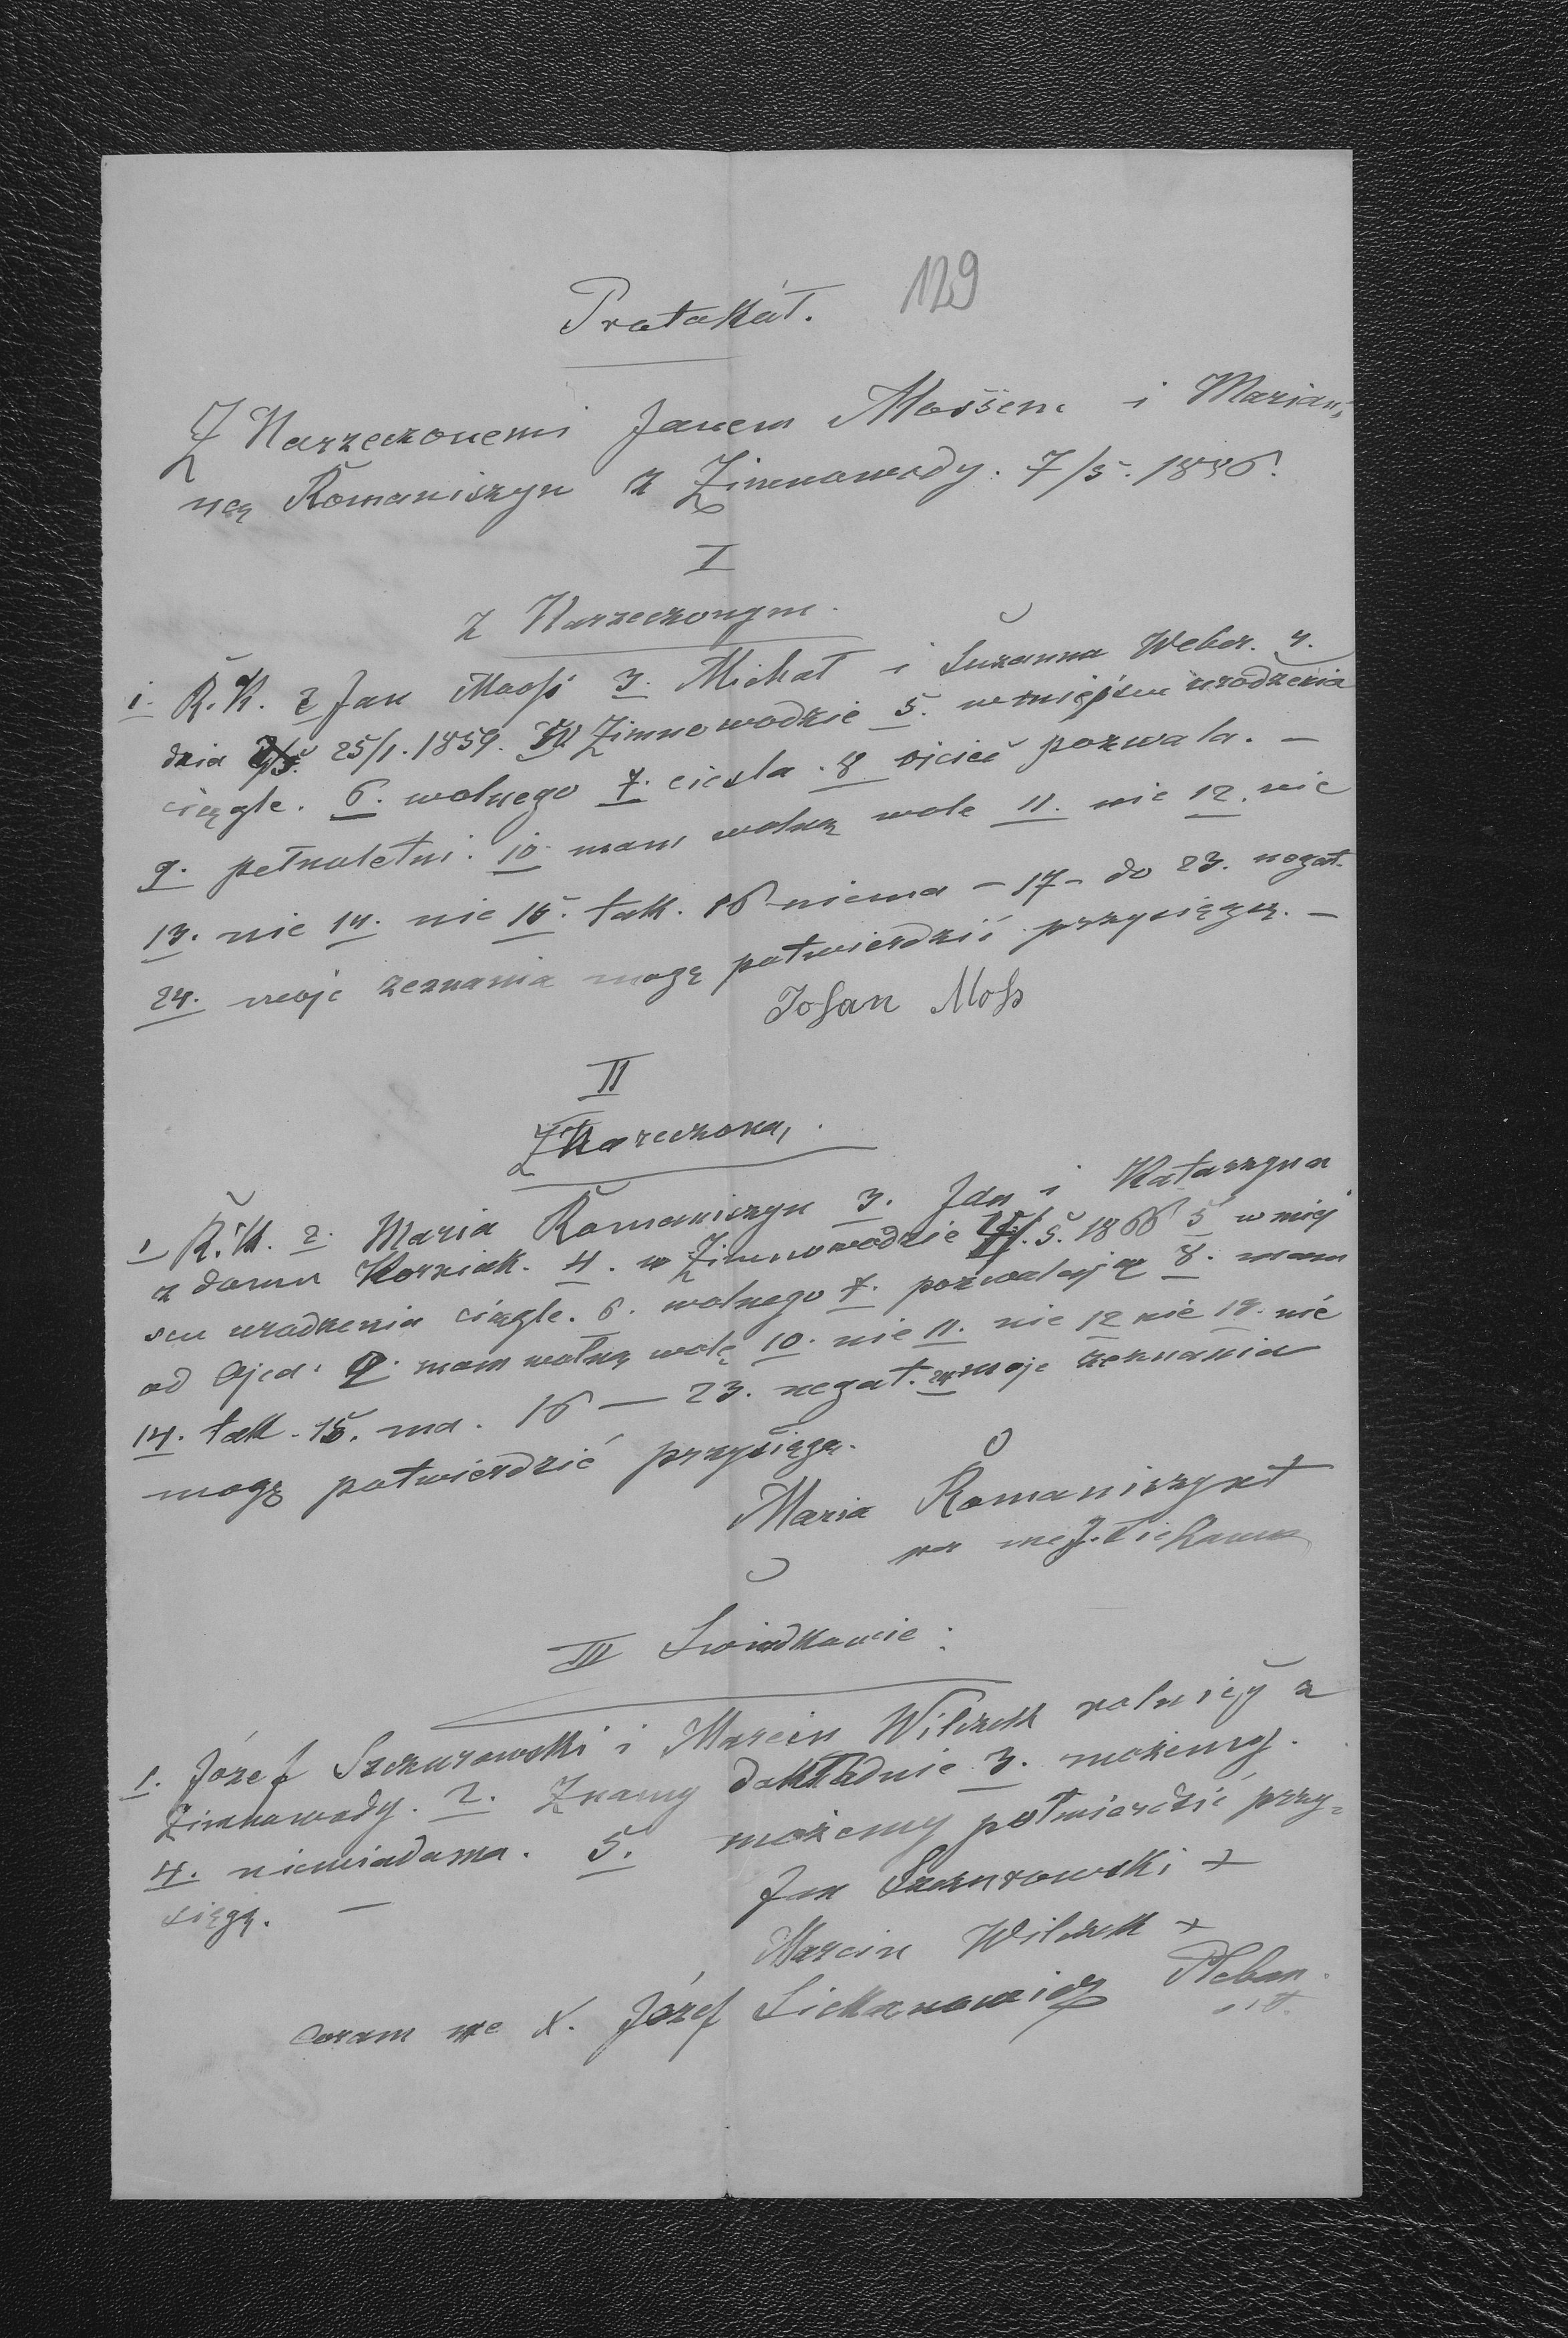 Protokół. 129
Z Narzeczonemi Janem Mossem i Marian-
ną Romaniszyn z Zimnowody. 7/5. 1886.
I
z Narzeczonym.
1. R.K. 2 Jan Mooß 3. Michał i Zuzanna Weber. 4.
dnia 25/1. 1859. W Zimnowodzie 5. w miejscu urodzenia
ciągle. 6. wolnego 7. ciesla. 8 ojciec pozwala. —
9. pełnoletni. 10 mam wolną wolę 11. nie 12. nie
13. nie 14. nie 15. tak. 16 niema – 17 – do 23. negat.
24. moje zeznania mogę potwierdzić przysięgą. —
Johan Moß
II
Z Narzeczoną.
1 R.K. 2. Maria Romaniszyn 3. Jan i Katarzyna
z domu Korziak. 4. w Zimnowodzie 5. 1866 5 w miej
scu urodzenia ciągle. 6. wolnego 7. pozwalają 8. mam
od Ojca. 9. mam wolną wolę 10. nie 11. nie 12 nie 13. nie
14. tak. 15. ma. 16 — 23. negat. 24 moje zeznania
mogę potwierdzić przysięgą.
Maria Romaniszyn †
III Swiadkowie:
1. Józef Szczurowski i Marcin Wilczek rolnicy z
Zimnowody. 2. Znamy dokładnie 3. możemy.
4. niewiadama. 5. możemy potwierdzić przy-
sięgę. —
Jan Szczurowski +
Marcin Wilczek +
coram me X. Józef Pleban.